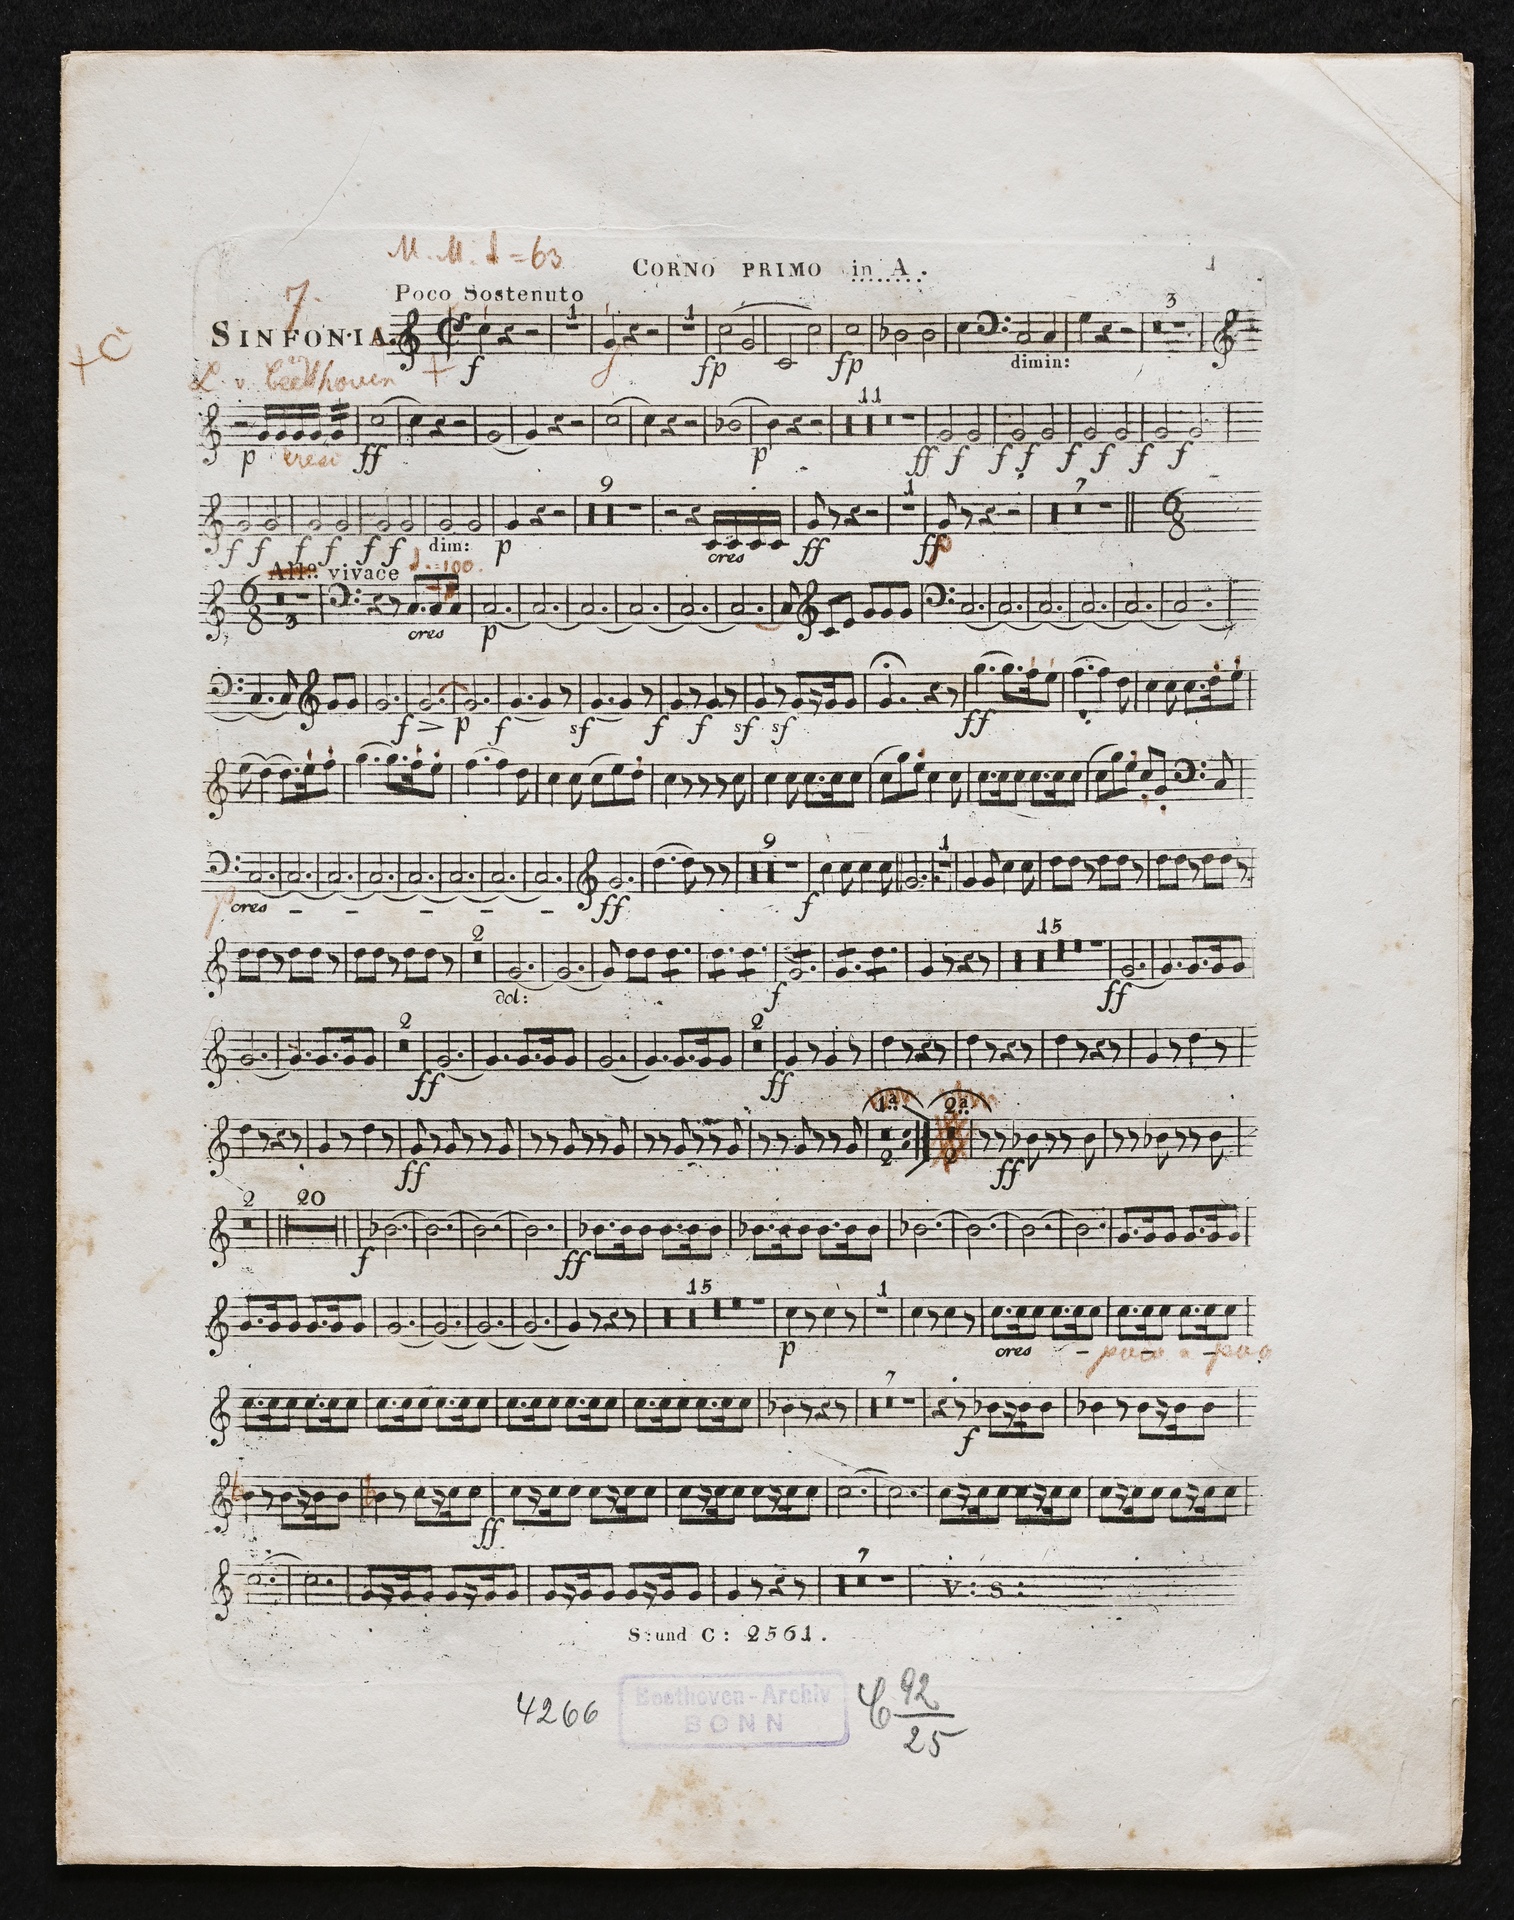 M. M. = 63
CORNO PRIMO in A. 1
7.
Poco Sostenuto
SINFONIA.
1 1 3
+C
L. v. Beethoven + f f fp fp dimin:
11
p cresc ff p ff f f f f f f f
9 1 7
f f f f f f dim: p cres ff ff
6 8
Allo. vivace = 100.
6 8 3
cres p
f > p f sf f f sf sf ff
9 1
p cres ff f
2 15
dol: f ff
2 2
ff ff
1a 2a
ff 2 2 ff
2 20
f ff
15 1
p cres poco a poco
7
f
ff
7
V: S:
S: und C: 2561.
4266
Beethoven-Archiv
BONN
C 92
25